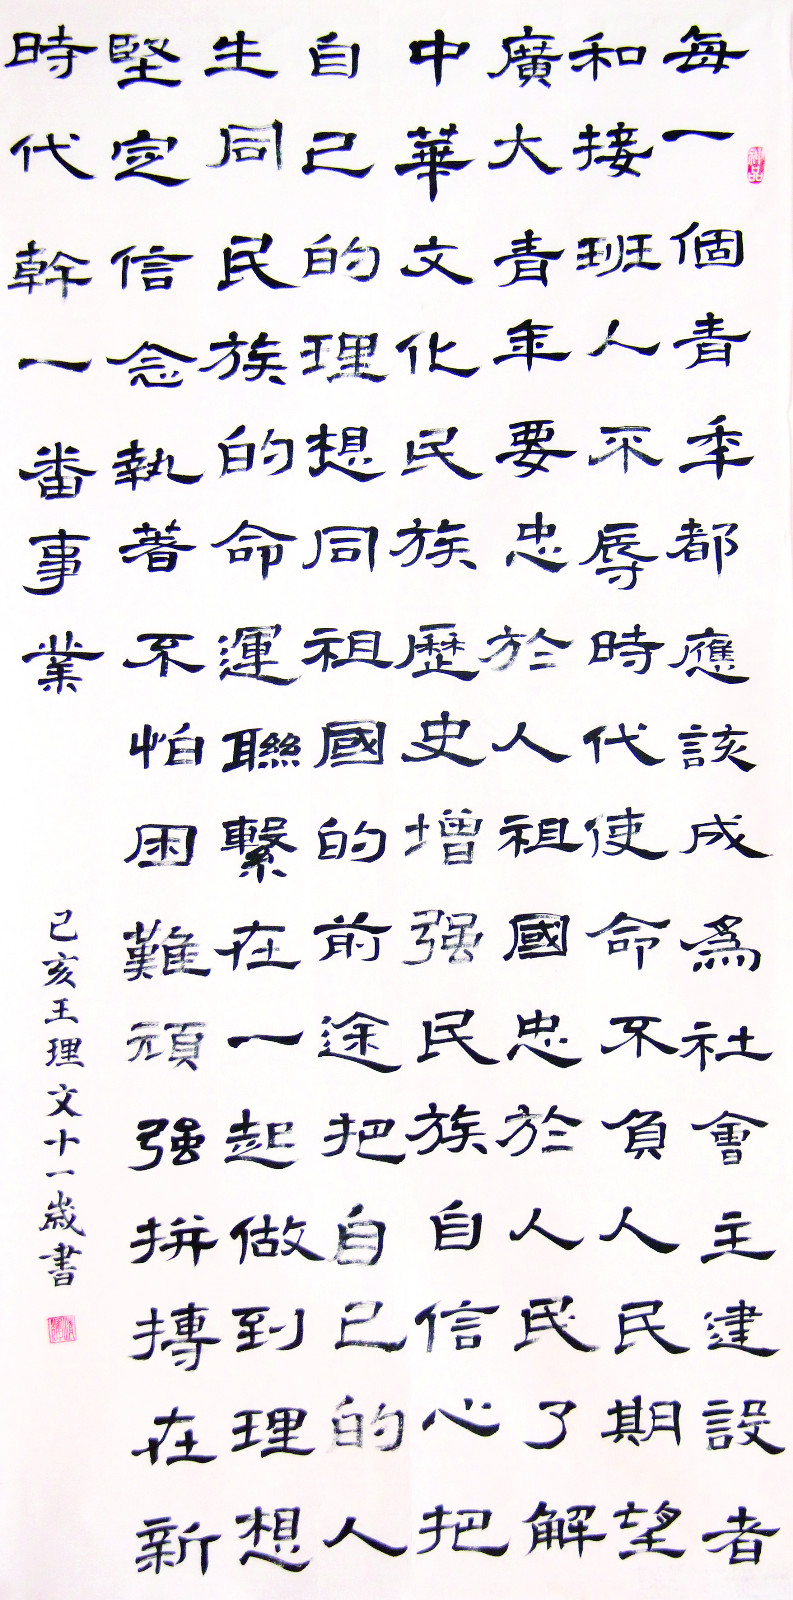 每一個青年都應該成爲社會主建設者
和接班人不辱時代使命不負人民期望
廣大青年要忠於人祖國忠於人民了解
中華文化民族歷史增强民族自信心把
自己的理想同祖國的前途把自己的人
生同民族的命運聯繫在一起做到理想
堅定信念執著不怕困難頑强拼搏在新
時代幹一番事業
己亥王理文十一歲書